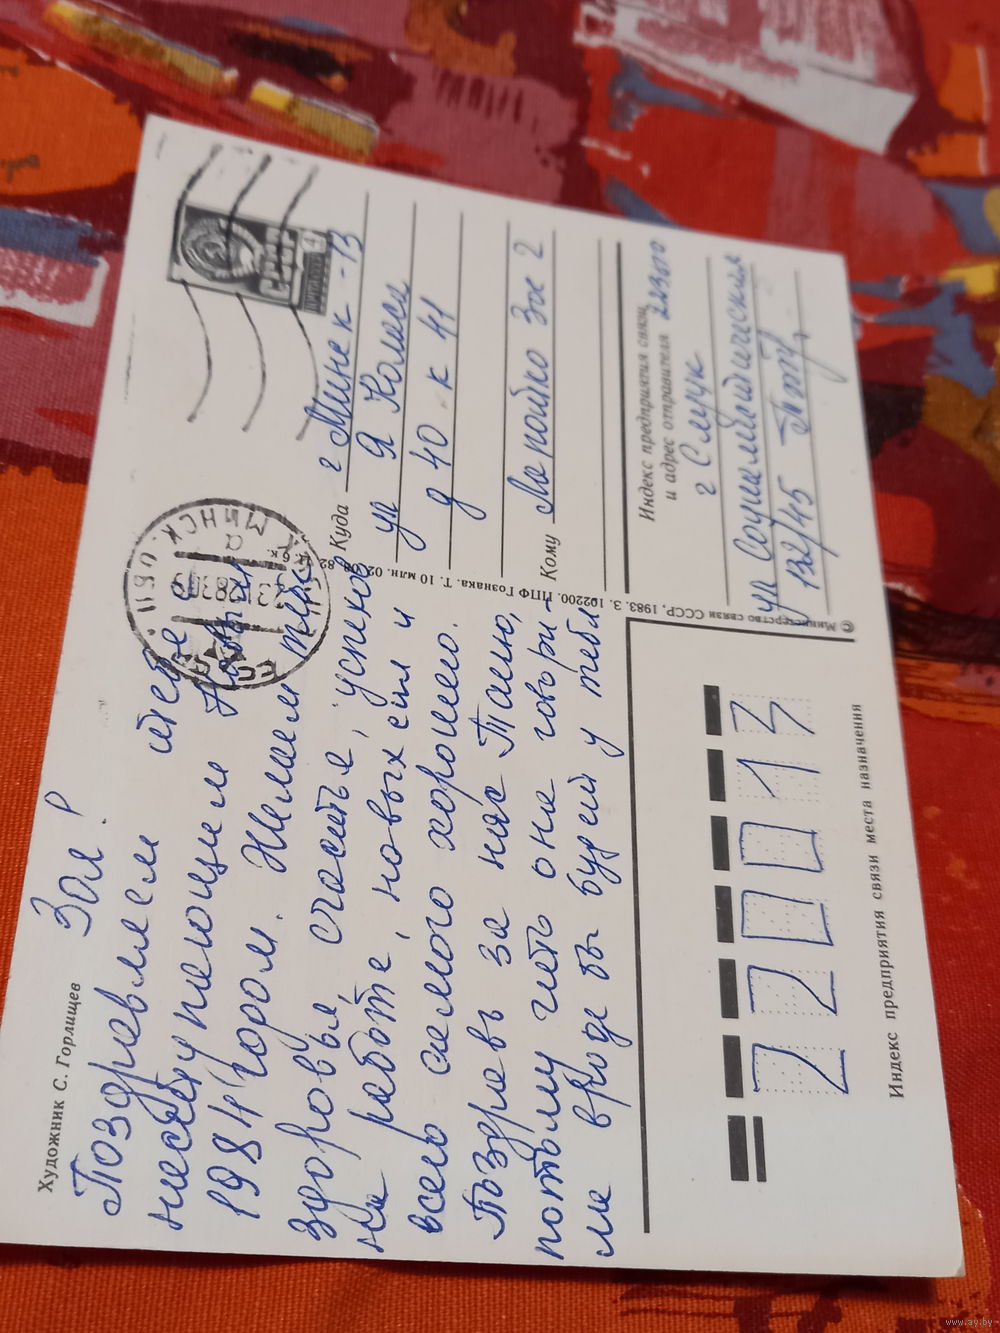 Художник С. Горлищев
Зоя!
Поздравляем тебя с
наступающим Новым
1984 годом. Желаем тебе
здоровья, счастья, успехов
на работе, новых сил и
всего самого хорошего.
Поздравь за нас Таню,
потому что она говори-
ла вроде бы будет у тебя
СССР
МИНСК
Куда г Минск-13
ул Я Коласа
д 40 к 41
Кому
Зое
Индекс предприятия связи
и адрес отправителя
г Слуцк
ул Социалистическая
132/45
© Министерство связи СССР, 1983. З. 102200. ППФ Гознака. Т. 10 млн. 02.08.82
220013
Индекс предприятия связи места назначения
www.ay.by